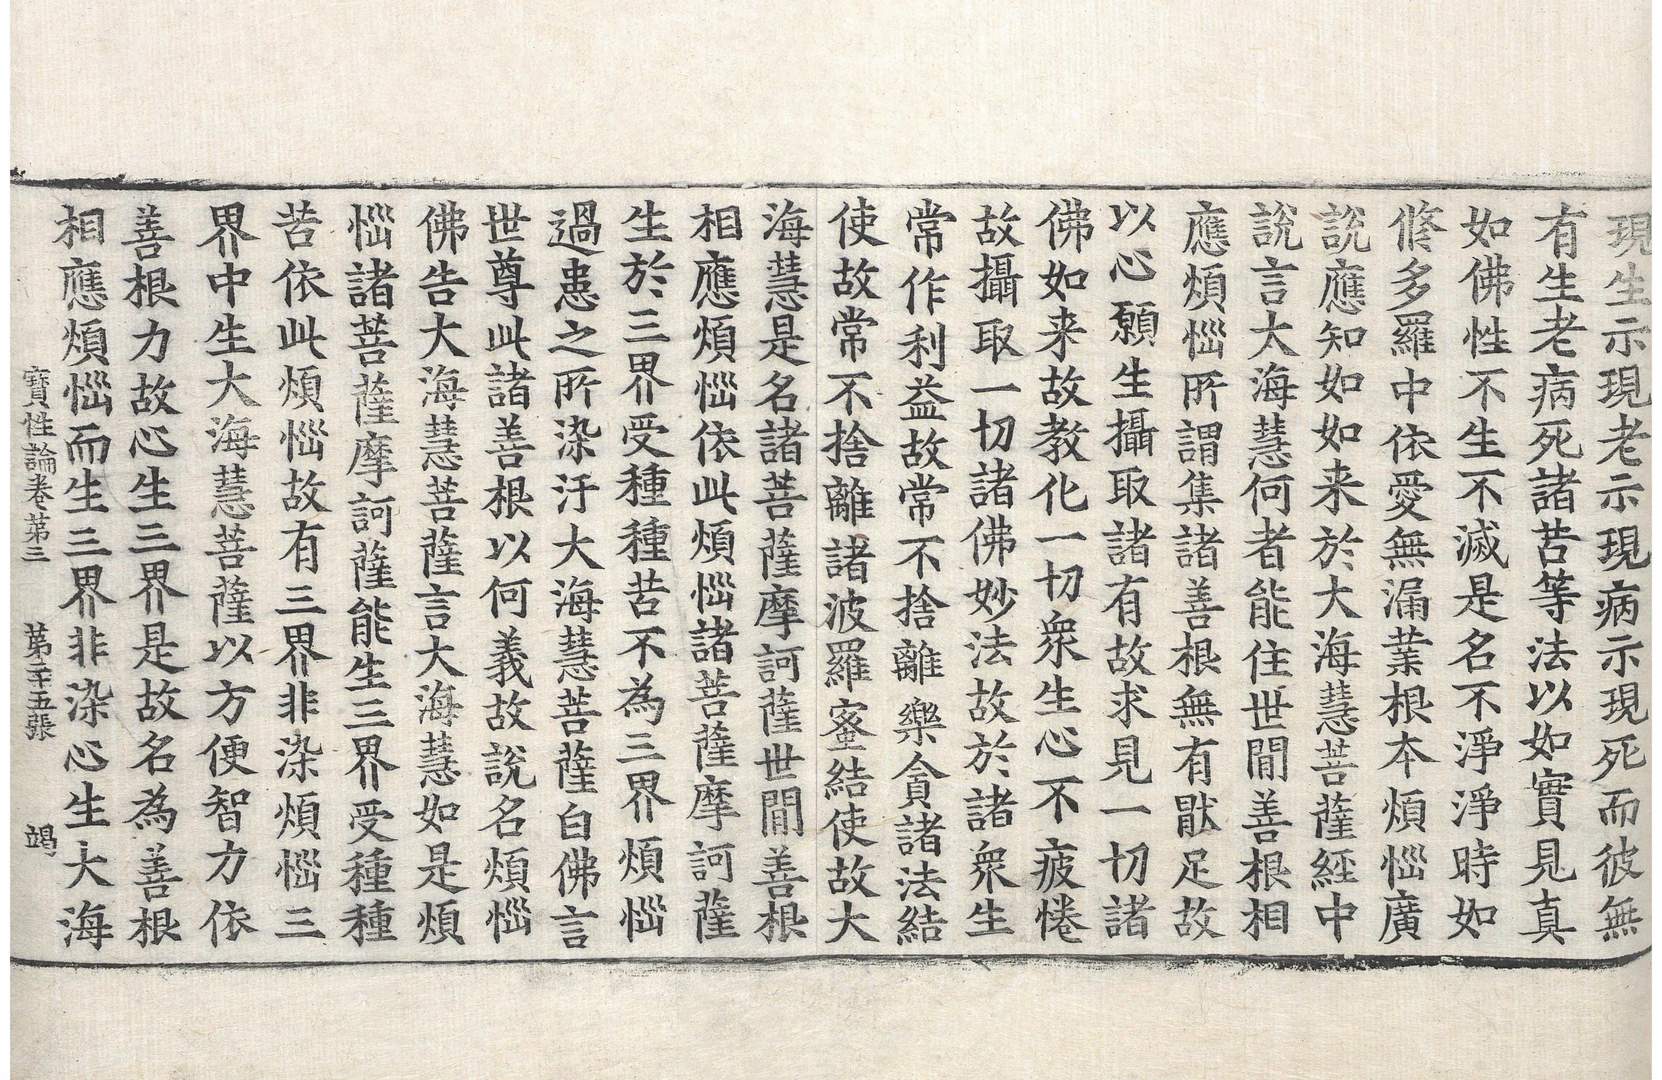 現生示現老示現病示現死而彼無
有生老病死諸苦等法以如實見真
如佛性不生不滅是名不淨淨時如
修多羅中依愛無漏業根本煩惱廣
說應知如如来於大海慧菩薩經中
說言大海慧何者能住世間善根相
應煩惱所謂集諸善根無有猒足故
以心願生攝取諸有故求見一切諸
佛如来故教化一切衆生心不疲惓
故攝取一切諸佛妙法故於諸衆生
常作利益故常不捨離樂貪諸法結
使故常不捨離諸波羅蜜結使故大
海慧是名諸菩薩摩訶薩世間善根
相應煩惱依此煩惱諸菩薩摩訶薩
生於三界受種種苦不為三界煩惱
過患之所染汙大海慧菩薩白佛言
世尊此諸善根以何義故說名煩惱
佛告大海慧菩薩言大海慧如是煩
惱諸菩薩摩訶薩能生三界受種種
苦依此煩惱故有三界非染煩惱三
界中生大海慧菩薩以方便智力依
善根力故心生三界是故名為善根
相應煩惱而生三界非染心生大海
寶性論卷第三 第二十五張 竭